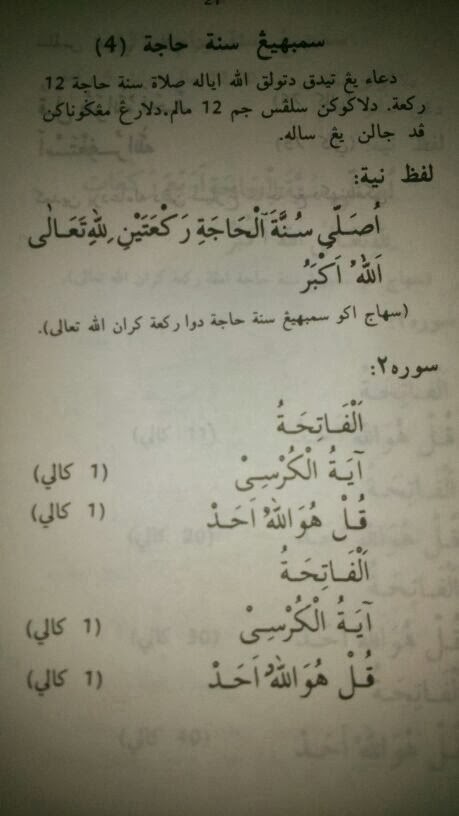 سمبهيڠ سنة حاجة (4)
دعاء يڠ تيدق دتولق الله اياله صلاة سنة حاجة 12
ركعة. دلاكوكن سلڤس جم 12 مالم.دلارڠ مڠݢوناكن
ڤد جالن يڠ ساله.
لفظ نية:
اُصَلِّي سُنَّةَ الْحَاجَةِ رَكْعَتَيْنِ لِلّٰهِ تَعَـالٰى
اَللّٰهُ اَكْبَرُ
(سهاج اكو سمبهيڠ سنة حاجة دوا ركعة كران الله تعالى).
سوره٢:
اَلْفَـاتِحَـةُ
آيَـةُ الْكُرْسِىْ (1 كالي)
قُـلْ هُوَ اللّٰهُ اَحَـدْ (1 كالي)
اَلْفَـاتِحَـةُ
آيَـةُ الْكُرْسِىْ (1 كالي)
قُـلْ هُوَ اللّٰهُ اَحَـدْ (1 كالي)